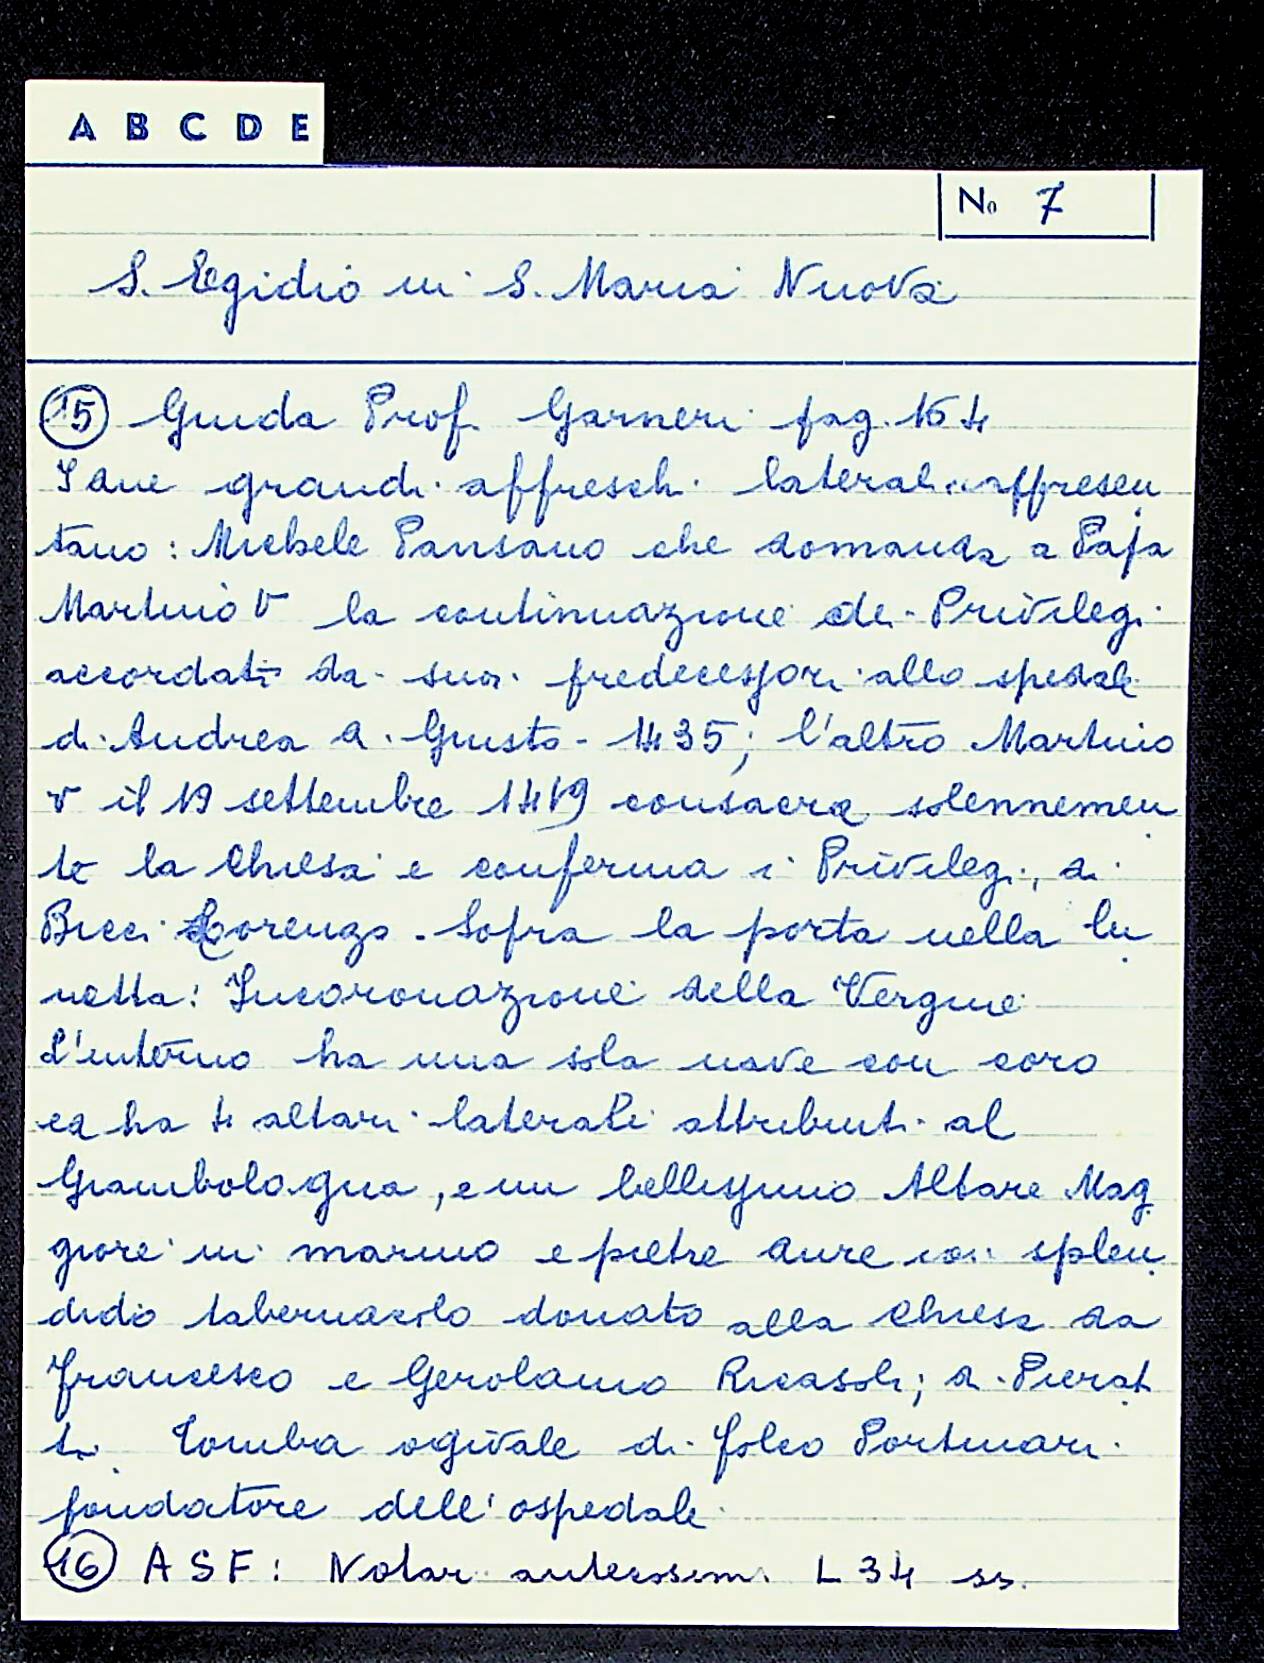 A B C D E
No 7
S. Egidio in S. Maria Nuova
15 Guida Prof. Garneri pag. 164
I due grandi affreschi laterali rappresen
tano: Michele Pansano che domanda a Papa
Martino V la continuazione dei Privilegi
accordati da suoi predecessori allo spedale
di Andrea d. Giusto - 1435; l'altro Martino
V il 19 settembre 1419 consacra solennemen
te la Chiesa e conferma i Privilegi, di
Bicci Lorenzo. Sopra la porta nella lu
netta: Incoronazione della Vergine
L'interno ha una sola nave con coro
ed ha 4 altari laterali attribuiti al
Giambologna, e un bellissimo Altare Mag
giore in marmo e pietre dure con splen
dido tabernacolo donato alla Chiesa da
Francesco e Gerolamo Ricasoli; di Pierat
ti. Tomba ogivale di Folco Portinari
fondatore dell'ospedale
16 ASF: Notar. antecosim. L 34 ss.